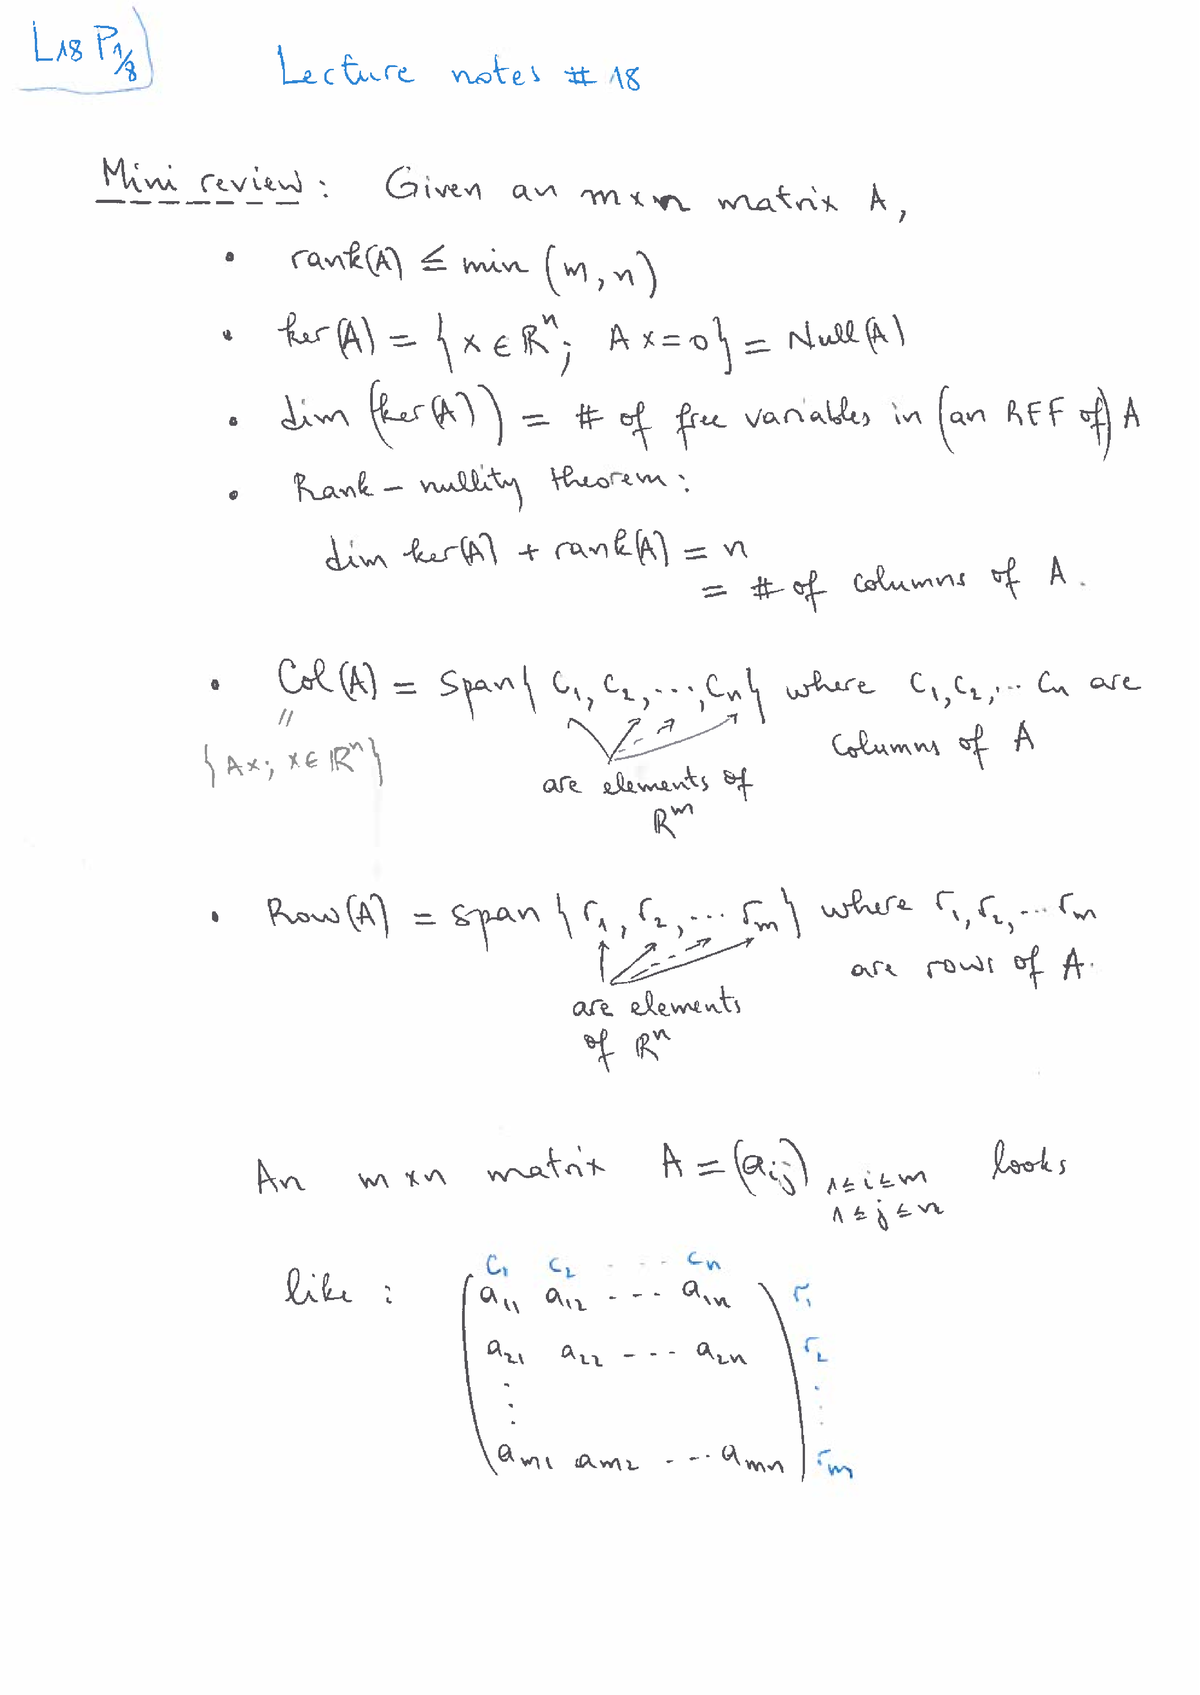 L18 P1/8
Lecture notes # 18
Mini review: Given an m×n matrix A,
• rank(A) ≤ min (m,n)
• ker(A) = {x ∈ ℝⁿ; Ax=0} = Null(A)
• dim (ker(A)) = # of free variables in (an REF of) A
• Rank-nullity theorem:
dim ker(A) + rank(A) = n
= # of columns of A.
• Col(A) = span{ C₁, C₂, ..., Cₙ} where C₁, C₂, ... Cₙ are
columns of A
"
{Ax; x ∈ ℝⁿ}
are elements of
ℝᵐ
• Row(A) = span { r₁, r₂, ... rₘ} where r₁, r₂, ... rₘ
are rows of A.
are elements
of ℝⁿ
An m×n matrix A = (aᵢⱼ) 1≤i≤m looks
1≤j≤n
C₁ C₂ ... Cₙ
like : ( a₁₁ a₁₂ --- a₁ₙ ) r₁
a₂₁ a₂₂ --- a₂ₙ r₂
⋮ ⋮
aₘ₁ aₘ₂ --- aₘₙ rₘ